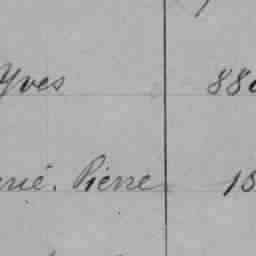 Yves 880
erié. Pierre 18